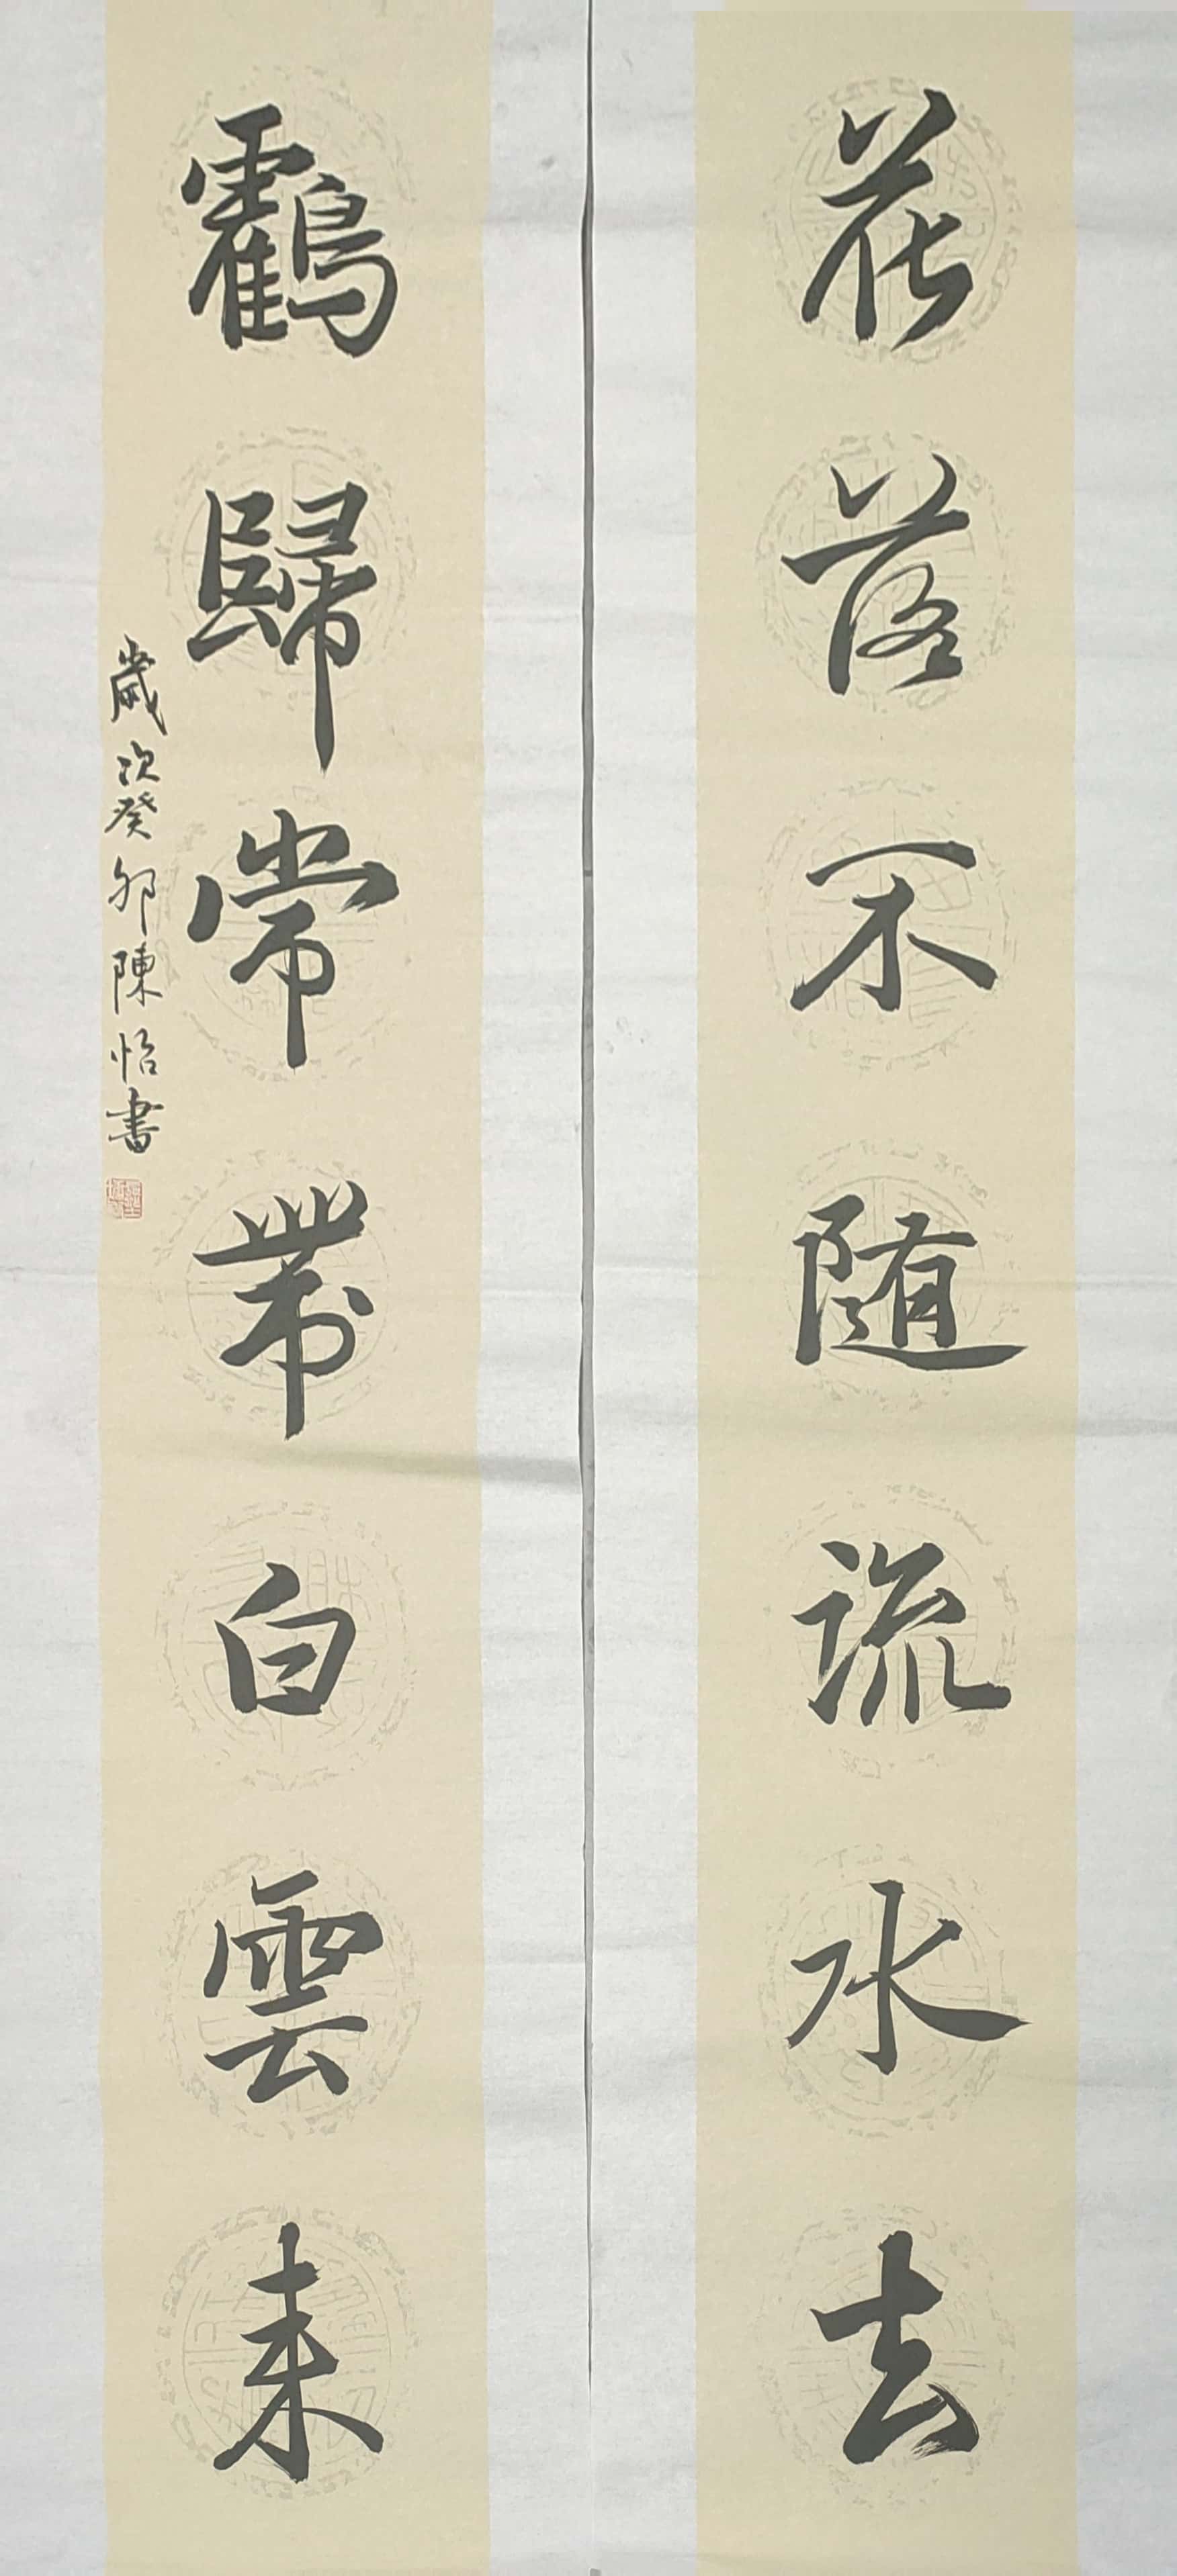 花落不随流水去
鶴歸常帶白雲来
歲次癸卯陳怡書